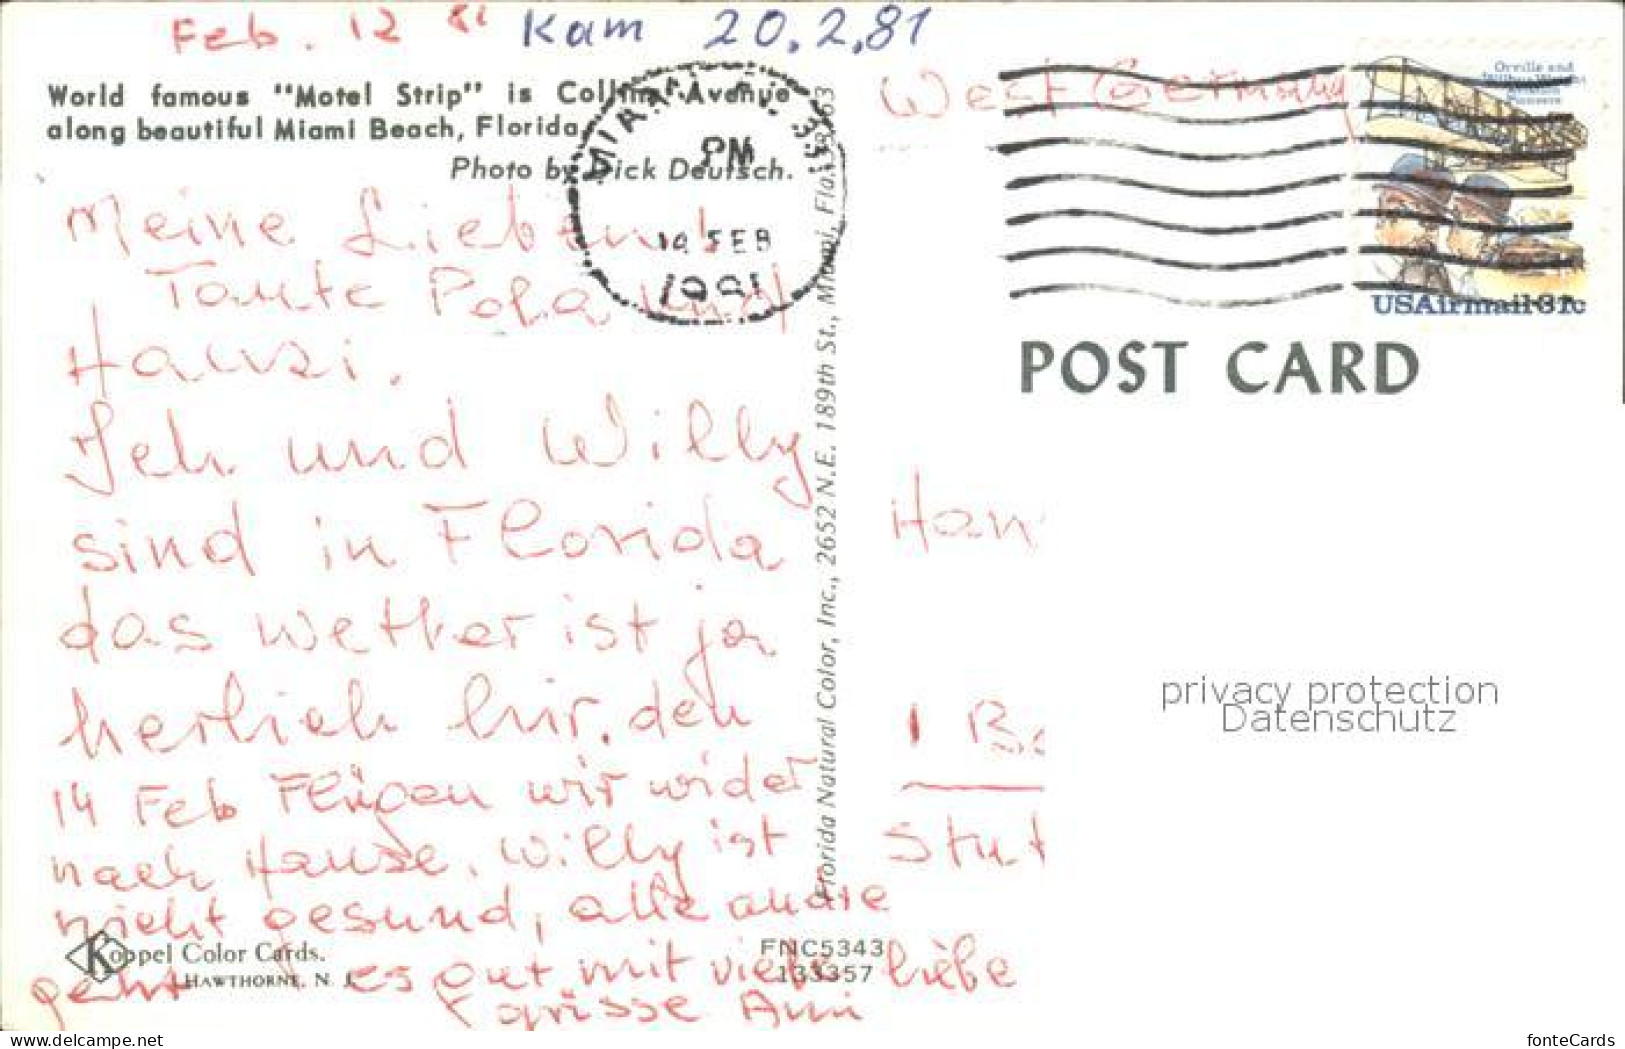 Feb. 12 81 Kam 20.2.81
World famous "Motel Strip" is Collins Avenue
along beautiful Miami Beach, Florida.
Photo by Dick Deutsch.
Meine Lieben
Tante Pola und
Hanzi.
Ich und Willy
sind in Florida
das wetter ist ja
herlich hir. den
14 Feb Flügen wir wider
nach Hause. Willy ist
nicht gesund, alle andre
geht es gut mit viele liebe
grüsse Ami
Koppel Color Cards.
HAWTHORNE, N. J.
FNC5343
133357
Florida Natural Color, Inc., 2652 N.E. 189th St., Miami, Fla. 33163
MIAMI, FL 331
PM
14 FEB
1981
West Germany
Orville and
Wilbur Wright
Aviation
Pioneers
USAirmail 31c
POST CARD
Han
1 Be
Stut
privacy protection
Datenschutz
www.delcampe.net
fonteCards